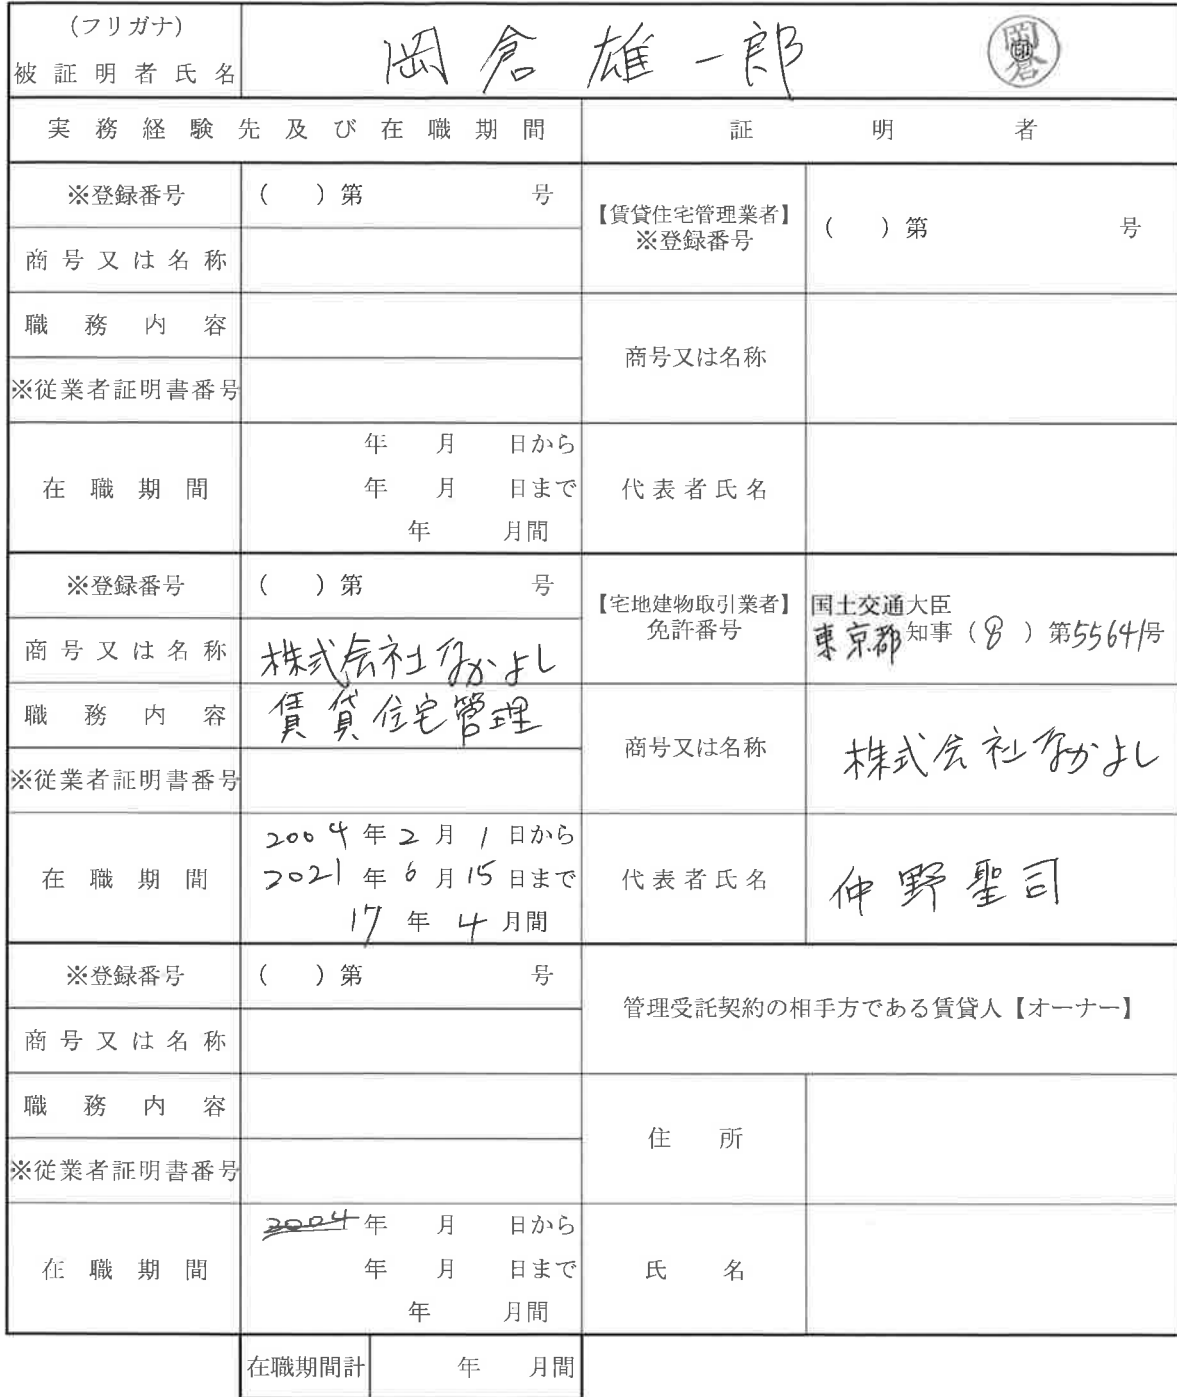 (フリガナ)
被証明者氏名 岡倉雄一郎 岡倉 印
実務経験先及び在職期間 証明者
※登録番号 ( )第 号 【賃貸住宅管理業者】 ※登録番号 ( )第 号
商号又は名称
職務内容 商号又は名称
※従業者証明書番号
在職期間 年 月 日から
年 月 日まで 代表者氏名
年 月間
※登録番号 ( )第 号 【宅地建物取引業者】 免許番号 国土交通大臣
東京都知事(8)第55641号
商号又は名称 株式会社なかよし
職務内容 賃貸住宅管理 商号又は名称 株式会社なかよし
※従業者証明書番号
在職期間 2004年2月1日から
2021年6月15日まで 代表者氏名 仲野聖司
17年4月間
※登録番号 ( )第 号 管理受託契約の相手方である賃貸人【オーナー】
商号又は名称
職務内容 住所
※従業者証明書番号
在職期間 2004年 月 日から
年 月 日まで 氏名
年 月間
在職期間計 年 月間